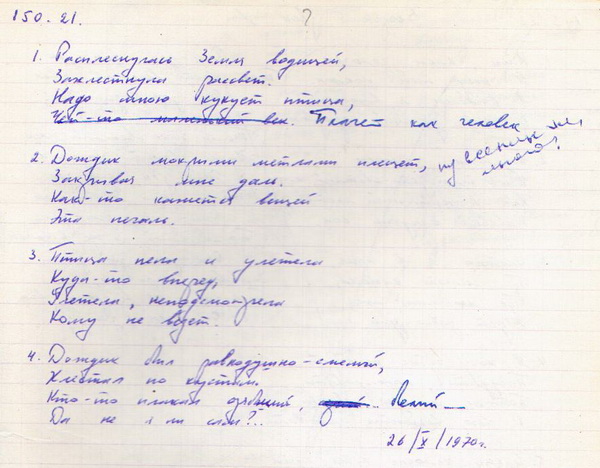 150.21. ?
1. Расплескулась Земля водицей,
Захлестнула рассвет.
Надо мною кукует птица,
век. Плачет как человек
2. Дождик мокрыми метлами плещет,
Закрывая мне даль.
Как-то кажется вещей
Эта печаль.
3. Птица пела и улетела
Куда-то вперед,
Улетела, неподсмотрела
Кому не везет.
4. Дождик был равнодушно-смелый,
Хлестал по кустам.
Кто-то плакал, белый —
Да не я ли сам?..
26/X/1970г.